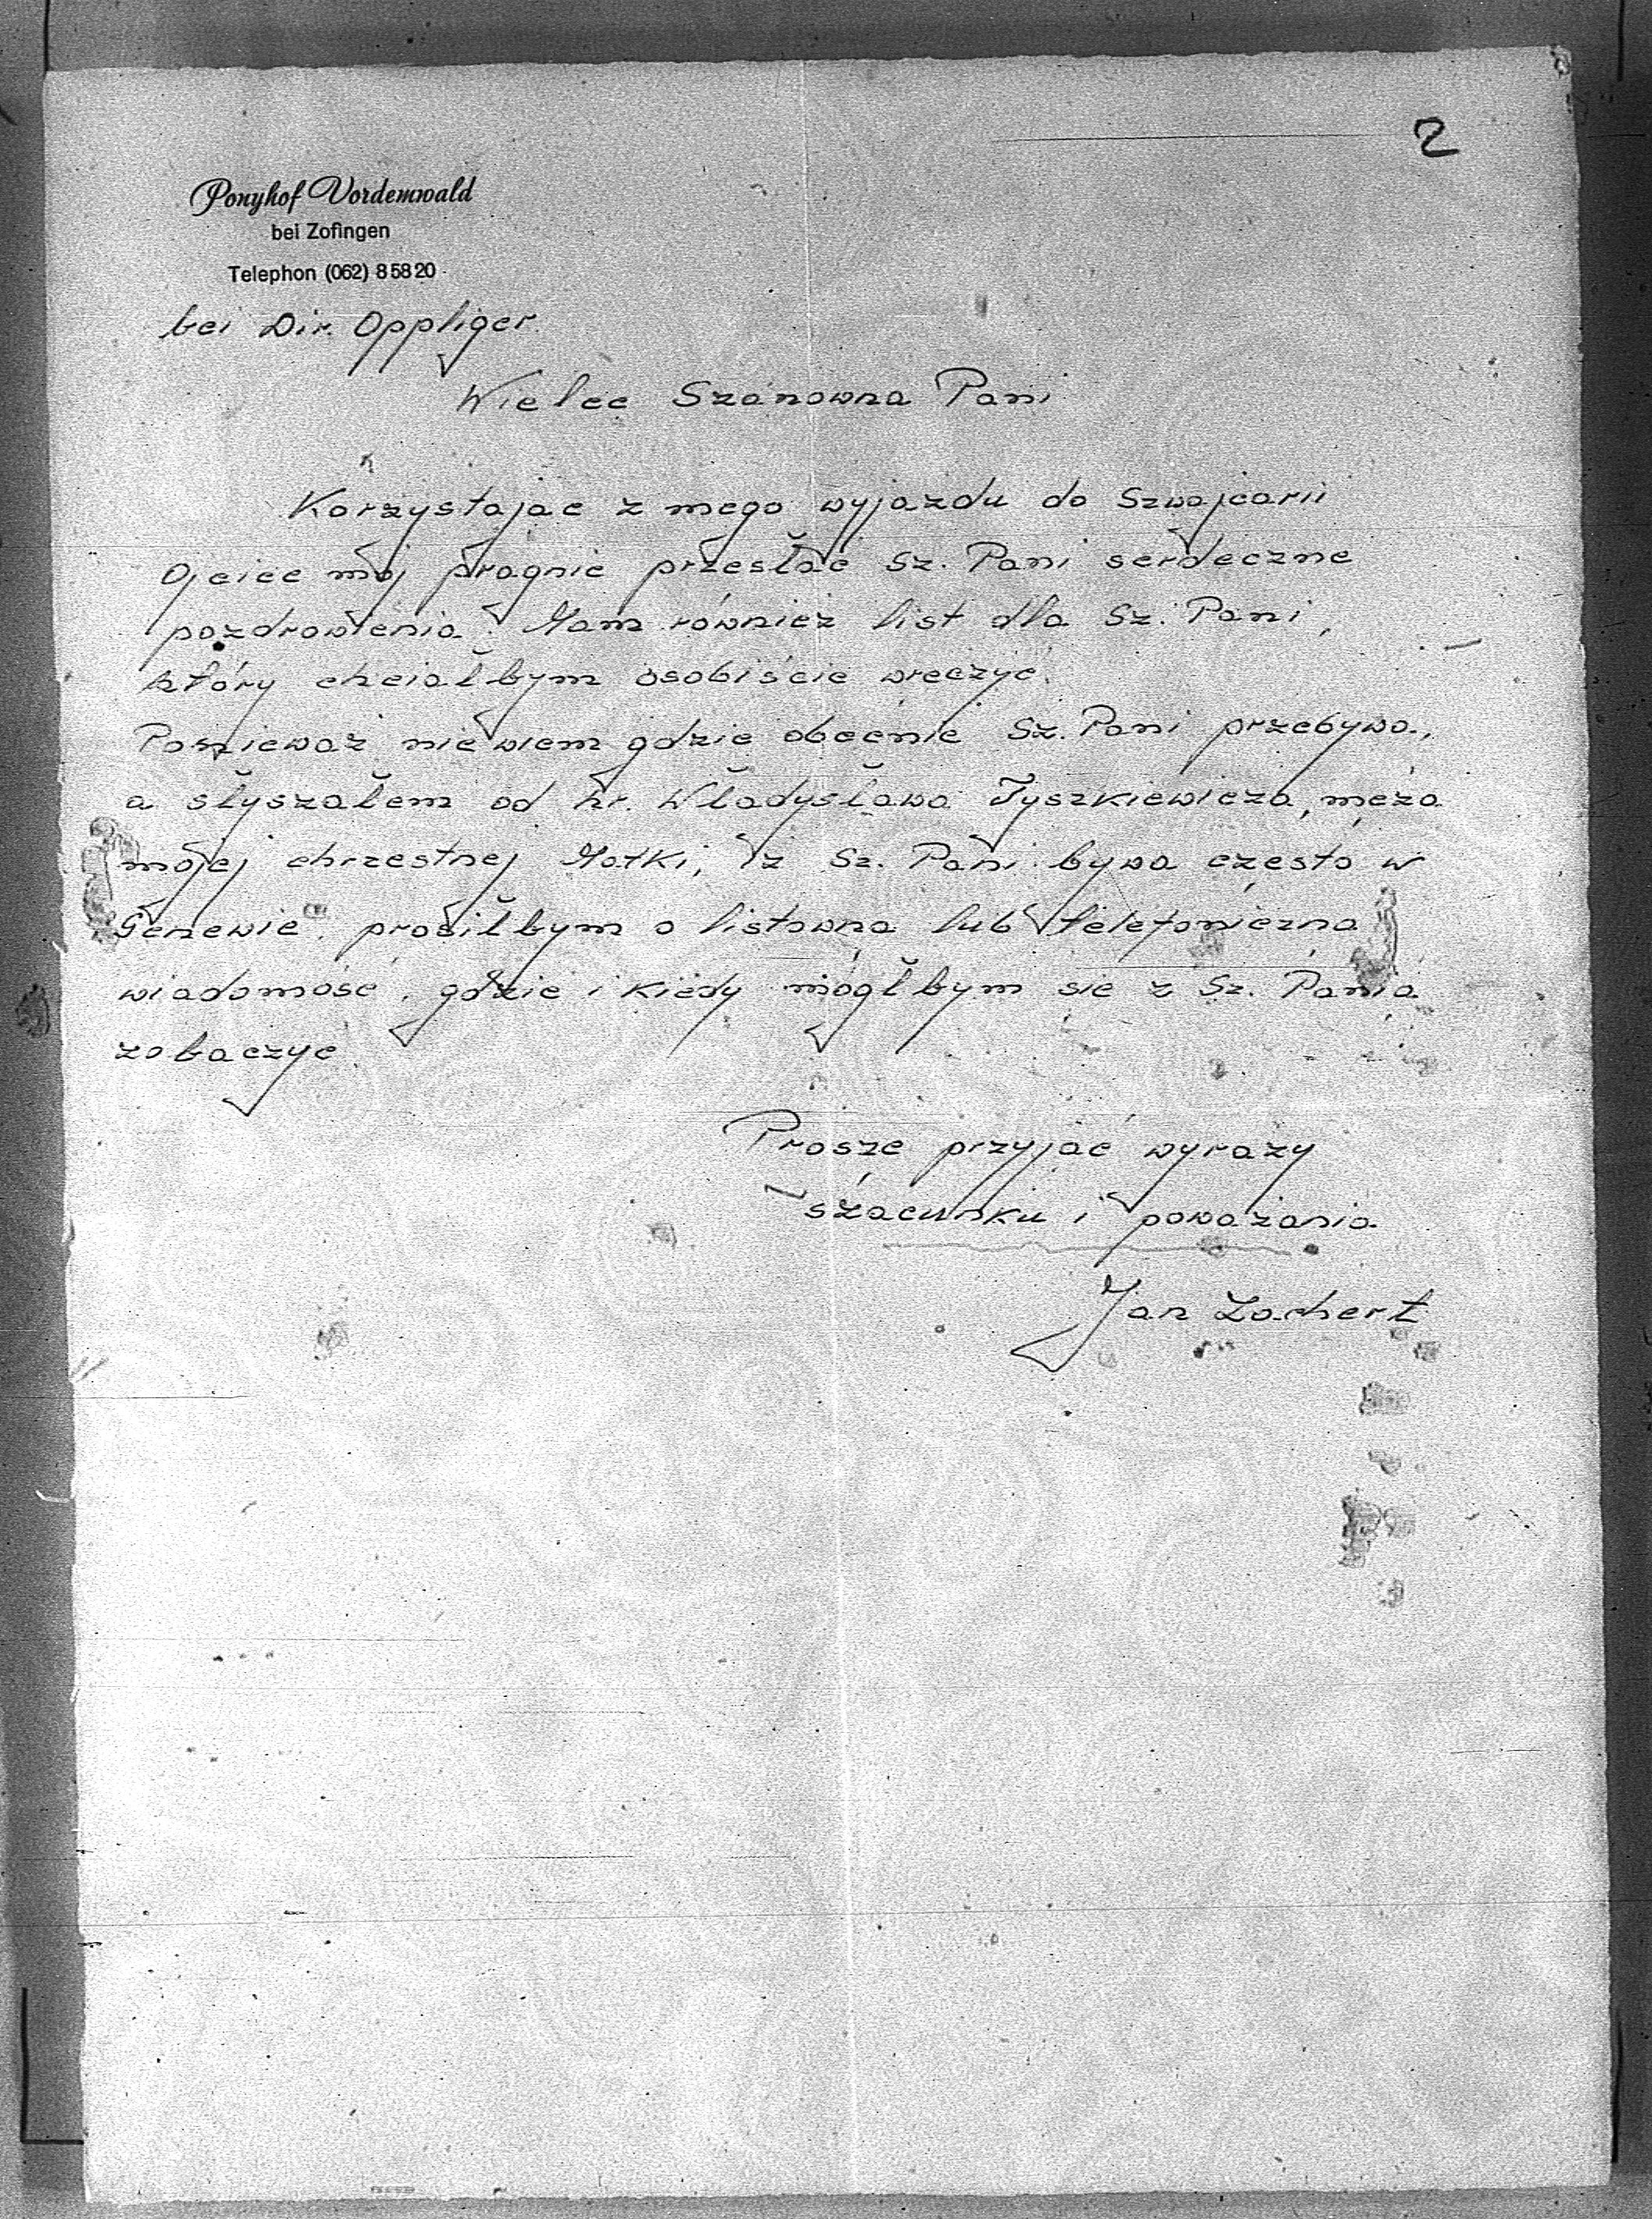 2
Ponyhof Vordemwald
bei Zofingen
Telephon (062) 8 58 20
bei Dir. Oppliger
Wielce Szanowna Pani
Korzystając z mego wyjazdu do Szwajcarii
Ojciec mój pragnie przesłać Sz. Pani serdeczne
pozdrowienia. Mam również list dla Sz. Pani,
który chciałbym osobiście wręczyć.
Ponieważ nie wiem gdzie obecnie Sz. Pani przebywa,
a słyszałem od hr. Władysława Tyszkiewicza, męża
mojej chrzestnej Matki, iż Sz. Pani bywa często w
Genewie, prosiłbym o listowną lub telefoniczną
wiadomość, gdzie i kiedy mógłbym się z Sz. Panią
zobaczyć.
Proszę przyjąć wyrazy
szacunku i poważania
Jan Lachert